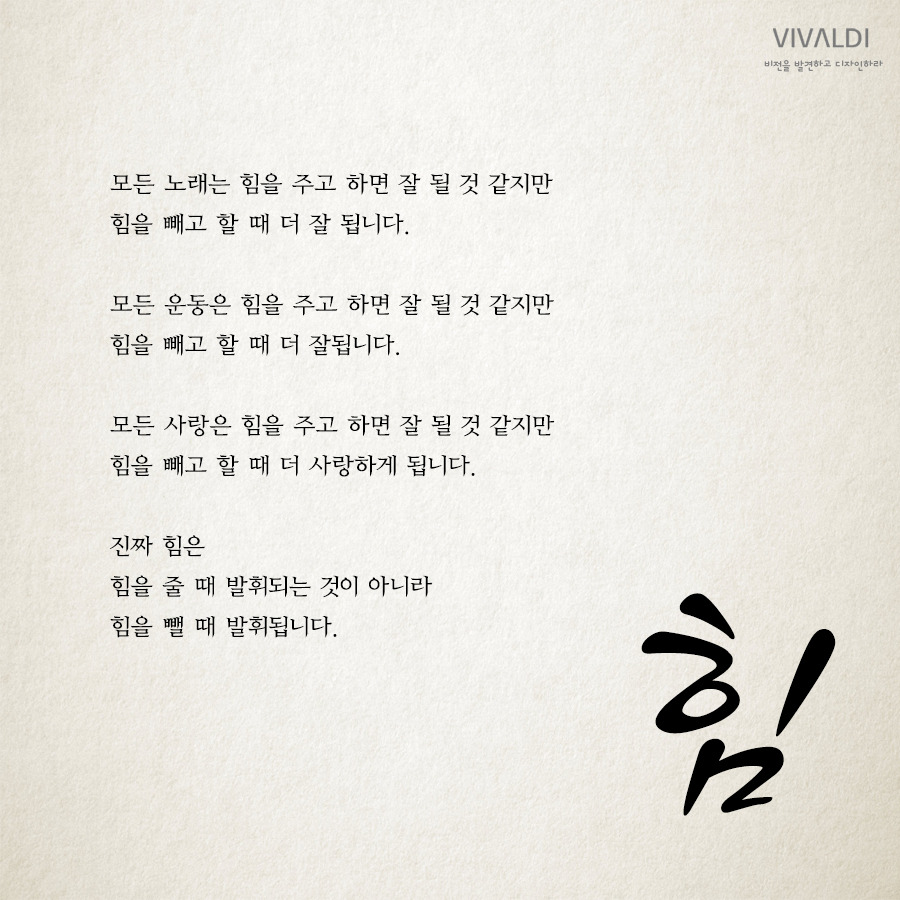 VIVALDI
비전을 발견하고 디자인하라
모든 노래는 힘을 주고 하면 잘 될 것 같지만
힘을 빼고 할 때 더 잘 됩니다.
모든 운동은 힘을 주고 하면 잘 될 것 같지만
힘을 빼고 할 때 더 잘됩니다.
모든 사랑은 힘을 주고 하면 잘 될 것 같지만
힘을 빼고 할 때 더 사랑하게 됩니다.
진짜 힘은
힘을 줄 때 발휘되는 것이 아니라
힘을 뺄 때 발휘됩니다.
힘